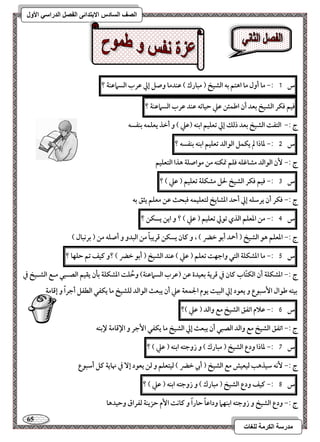 الصف السادس الابتدائى الفصل الدراسي الأول
الفصل الثاني
عزة نفس و طموح
س 1 :- ما أول ما اهتم به الشيخ ( مبارك ) عندما وصل إلي عرب السماعنة ؟
فيم فكر الشيخ بعد أن اطمئن علي حياته عند عرب السماعنة ؟
ج :- التفت الشيخ بعد ذلك إلي تعليم ابنه (علي ) و أخذ يعلمه بنفسه
س 2 :- لماذا لم يكمل الوالد تعليم ابنه بنفسه ؟
ج :- لأن الوالد مشاغله فلم تمكنه من مواصلة هذا التعليم
س 3 :- فيم فكر الشيخ لحل مشكلة تعليم ( علي ) ؟
ج :- فكر أن يرسله إلي أحد المشايخ لتعليمه فبحث عن معلم يثق به
س 4 :- من المعلم الذي تولي تعليم ( علي ) ؟ و اين يسكن ؟
ج :- المعلم هو الشيخ ( أحمد أبو خضر ) ، و كان يسكن قريباً من البدو و أصله من ( برنبال )
س 5 :- ما المشكلة التي واجهت تعلم ( علي ) عند الشيخ ( أبو خضر ) ؟و كيف تم حلها ؟
ج :- المشكلة أن الكتّاب كان في قرية بعيدة عن (عرب السماعنة) وحُلت المشكلة بأن يقيم الصبي مع الشيخ في
بيته طوال الأسبوع و يعود إلي البيت يوم الجمعة علي أن يبعث الوالد للشيخ ما يكفي الطفل أجراً و إقامة
س 6 :- علام اتفق الشيخ مع والد ( علي )؟
ج :- اتفق الشيخ مع والد الصبي أن يبعث إلي الشيخ ما يكفي الأجر و الإقامة لإبنه
س 7 :- لماذا ودع الشيخ ( مبارك ) و زوجته ابنه ( علي ) ؟
ج :- لأنه سيذهب ليعيش مع الشيخ ( أبي خضر ) ليتعلم و لن يعود إلا في نهاية كل أسبوع
س 8 :- كيف ودع الشيخ ( مبارك ) و زوجته ابنه ( علي ) ؟
ج :- ودع الشيخ و زوجته ابنهما وداعاً حاراً و كانت الأم حزينة لفراق وحيدها
65
مدرسة الكرمة للغات